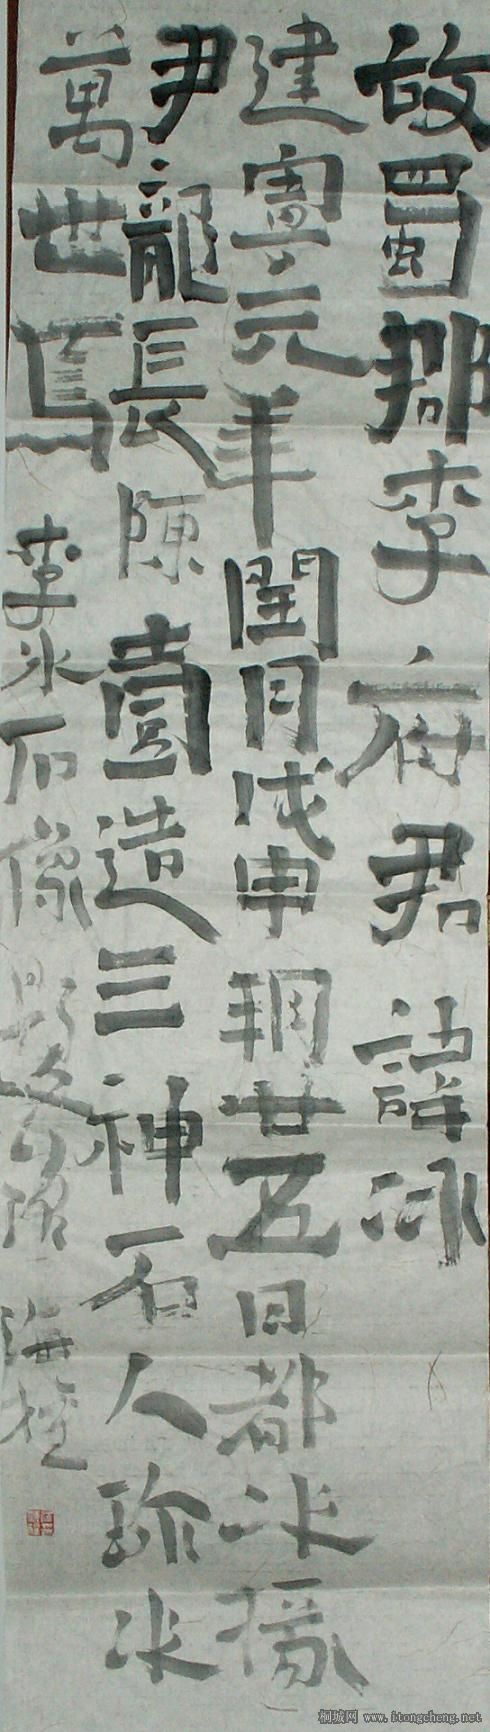 故蜀郡李府君諱冰
建寧元年閏月戊申朔廿五日都水掾
尹龍長陳壹造三神石人珎水
萬世焉
李冰石像題迹
海
桐城网 www.itongcheng.net